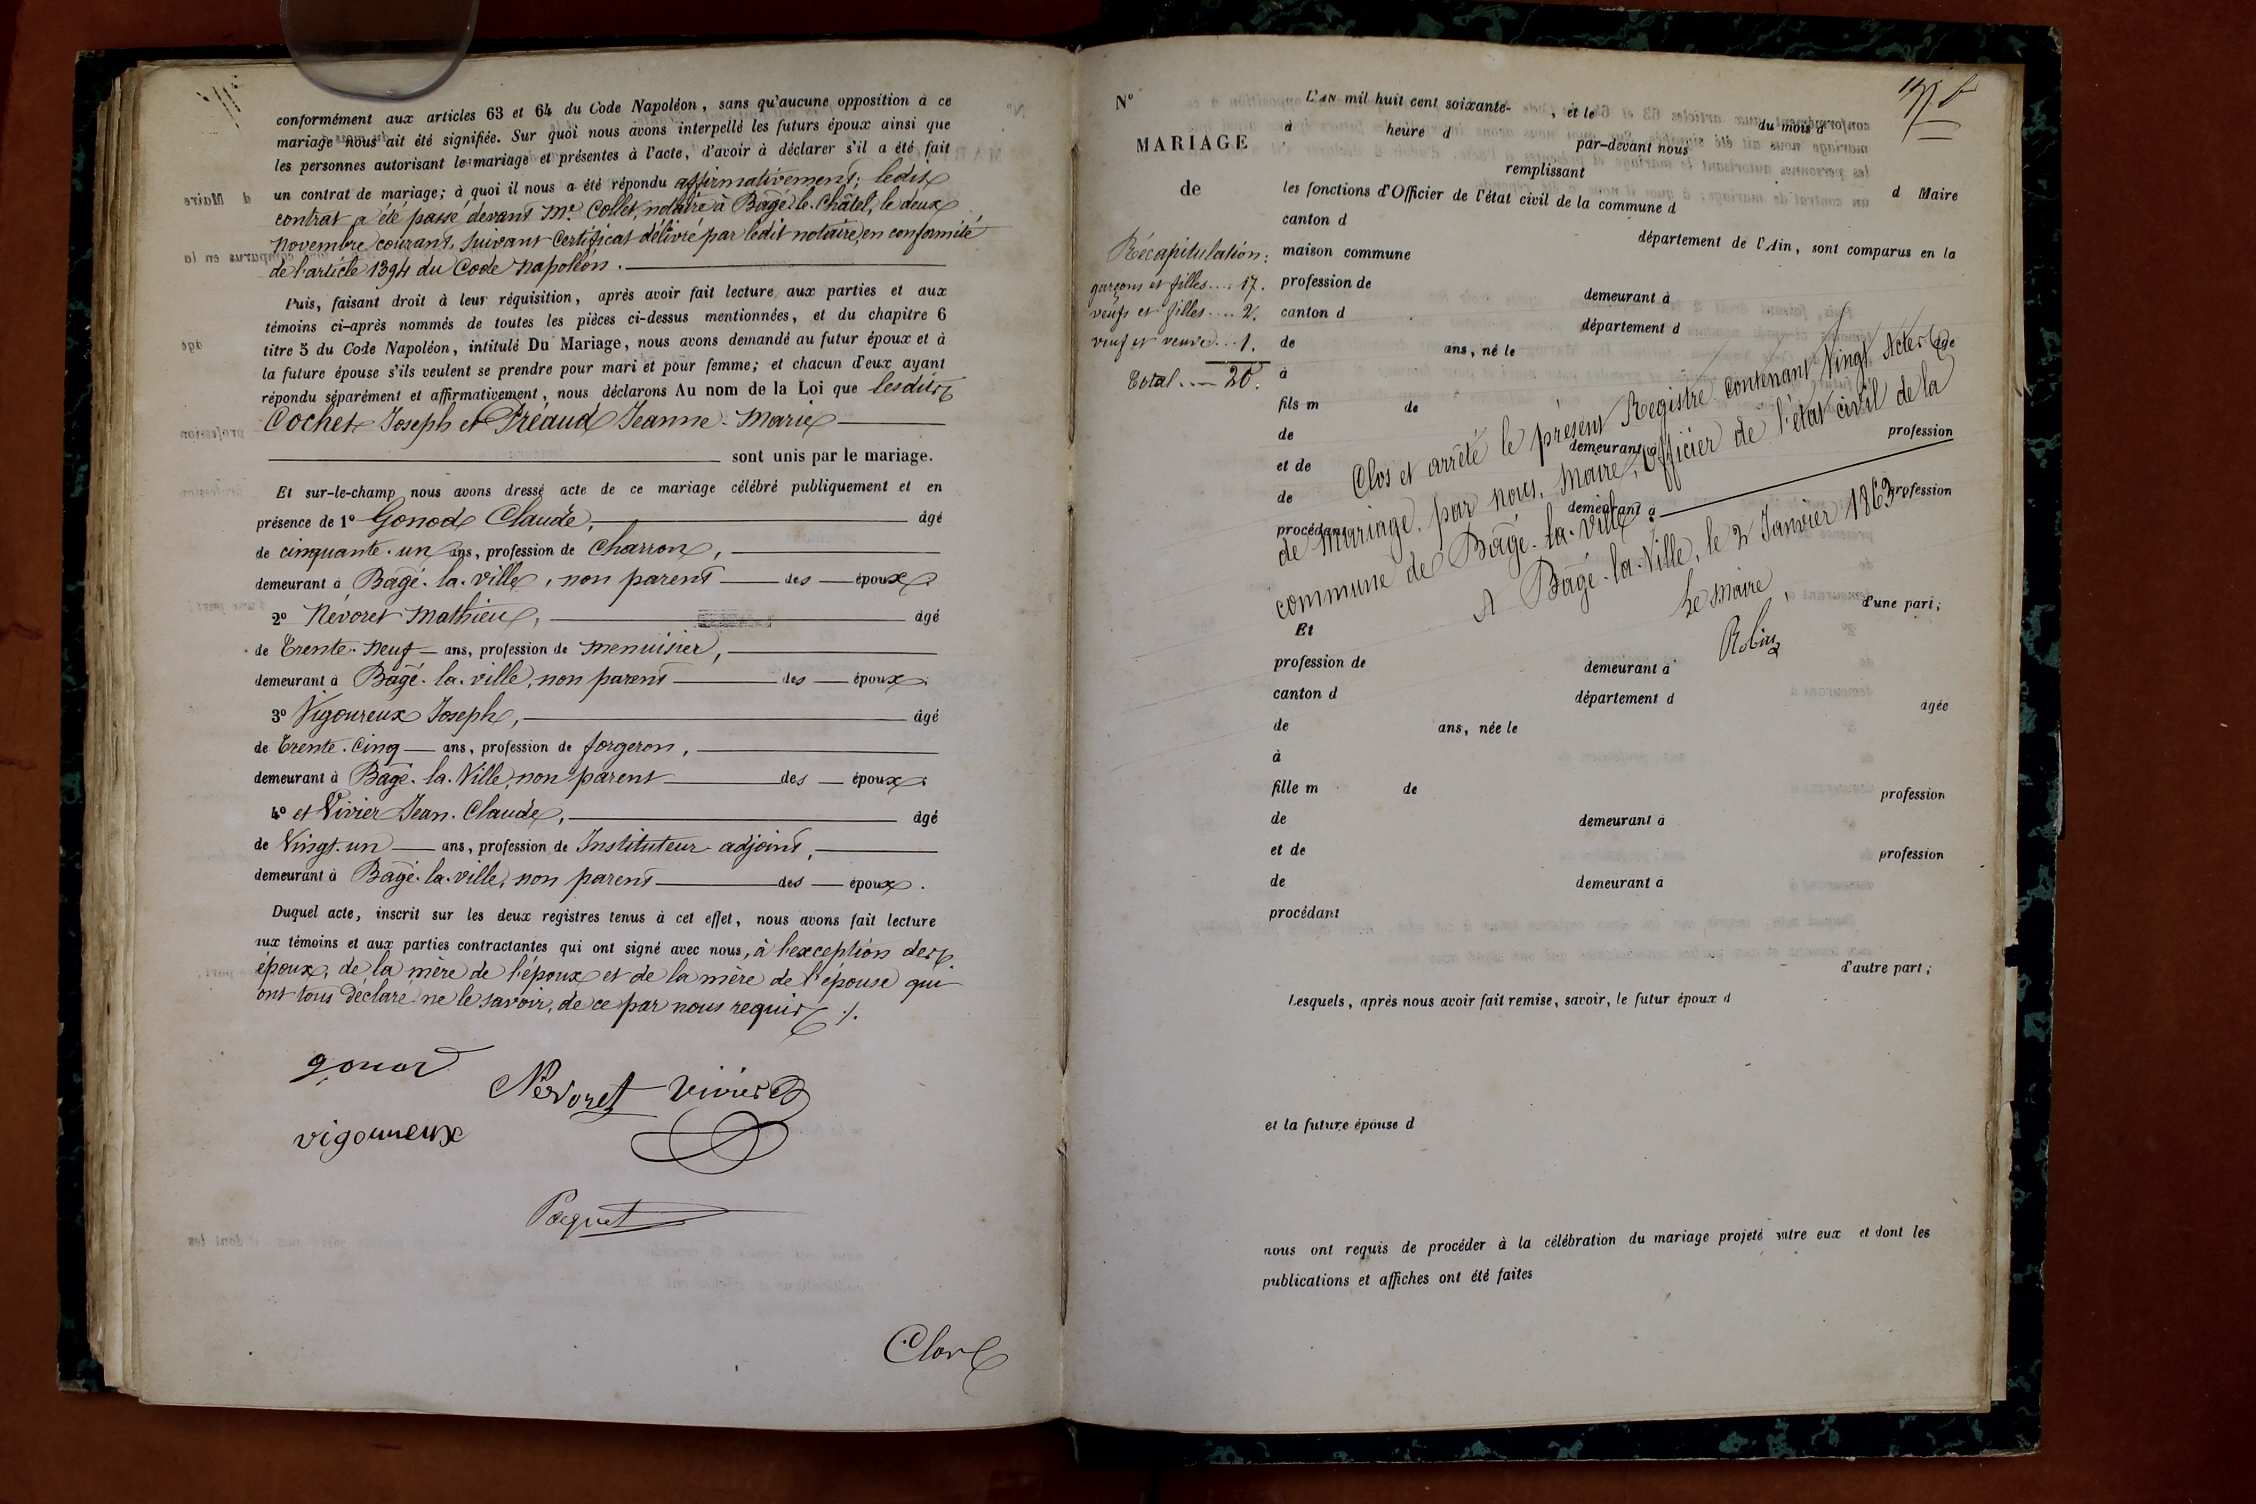 conformément aux articles 63 et 64 du Code Napoléon, sans qu'aucune opposition à ce
mariage nous ait été signifiée. Sur quoi nous avons interpellé les futurs époux ainsi que
les personnes autorisant le mariage et présentes à l'acte, d'avoir à déclarer s'il a été fait
un contrat de mariage; à quoi il nous a été répondu affirmativement; ledit
contrat a été passé devant Me. Collet, notaire à Bâgé-le-Châtel, le deux
Novembre courant, suivant certificat délivré par ledit notaire, en conformité
de l'article 1394 du Code Napoléon.
Puis, faisant droit à leur réquisition, après avoir fait lecture aux parties et aux
témoins ci-après nommés de toutes les pièces ci-dessus mentionnées, et du chapitre 6
titre 5 du Code Napoléon, intitulé Du Mariage, nous avons demandé au futur époux et à
la future épouse s'ils veulent se prendre pour mari et pour femme; et chacun d'eux ayant
répondu séparément et affirmativement, nous déclarons Au nom de la Loi que lesdits
Cochet Joseph et Préaud Jeanne-Marie
sont unis par le mariage.
Et sur-le-champ nous avons dressé acte de ce mariage célébré publiquement et en
présence de 1° Gonod Claude, âgé
de cinquante-un ans, profession de charron,
demeurant à Bâgé-la-ville, non parent des époux.
2° Névoret Mathieu, âgé
de Trente-neuf ans, profession de menuisier,
demeurant à Bâgé-la-ville, non parent des époux.
3° Vigoureux Joseph, âgé
de Trente-cinq ans, profession de forgeron,
demeurant à Bâgé-la-Ville, non parent des époux.
4° et Vivier Jean-Claude, âgé
de Vingt-un ans, profession de Instituteur-adjoint,
demeurant à Bâgé-la-ville, non parent des époux.
Duquel acte, inscrit sur les deux registres tenus à cet effet, nous avons fait lecture
aux témoins et aux parties contractantes qui ont signé avec nous, à l'exception des
époux, de la mère de l'époux et de la mère de l'épouse qui
ont tous déclaré ne le savoir, de ce par nous requis ./.
gonod
Névoret Vivier
vigoureux
Pacquet
Clos
N°
MARIAGE
de
Récapitulation:
garçons et filles.... 17.
veufs et filles.... 2.
veuf et veuve... 1.
Total.... 20.
L'AN mil huit cent soixante- , et le du mois d
à heure d par-devant nous
remplissant
les fonctions d'Officier de l'état civil de la commune d d Maire
canton d département de l'Ain, sont comparus en la
maison commune
profession de demeurant à
canton d département d
de ans, né le âgé
à
fils m de
de demeurant à profession
et de
de demeurant à profession
procédant
Clos et arrêté le présent Registre contenant Vingt Actes
de Mariage, par nous, Maire, Officier de l'état civil de la
commune de Bâgé-la-ville.
A Bâgé-la-Ville, le 2 Janvier 1863.
Le Maire,
Robin
d'une part;
Et
profession de demeurant à
canton d département d
de ans, née le âgée
à
fille m de
de demeurant à profession
et de
de demeurant à profession
procédant
d'autre part;
Lesquels, après nous avoir fait remise, savoir, le futur époux d
et la future épouse d
nous ont requis de procéder à la célébration du mariage projeté entre eux et dont les
publications et affiches ont été faites